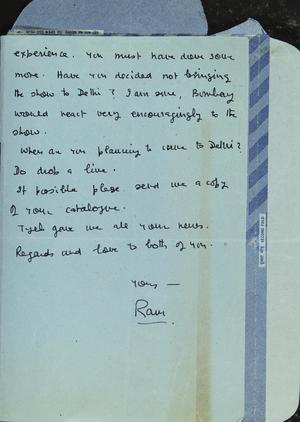 experience. You must have done some
more. Have you decided not bringing
the show to Delhi? I am sure, Bombay
would react very encouragingly to the
show.
When are you planning to come to Delhi?
Do drop a line.
If possible please send me a copy
of your catalogue.
gave me all your news.
Regards and love to both of you.
Yours —
Ram